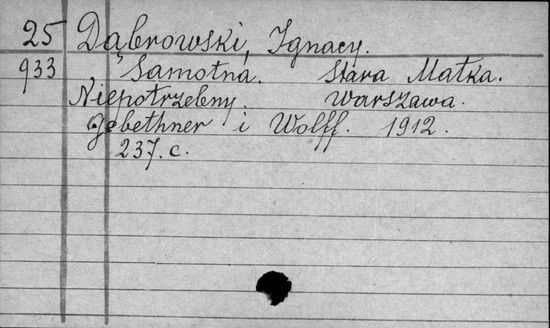 25 Dąbrowski, Ignacy.
933 Samotna. Stara Matka.
Niepotrzebny. Warszawa.
Gebethner i Wolff. 1912.
237. c.